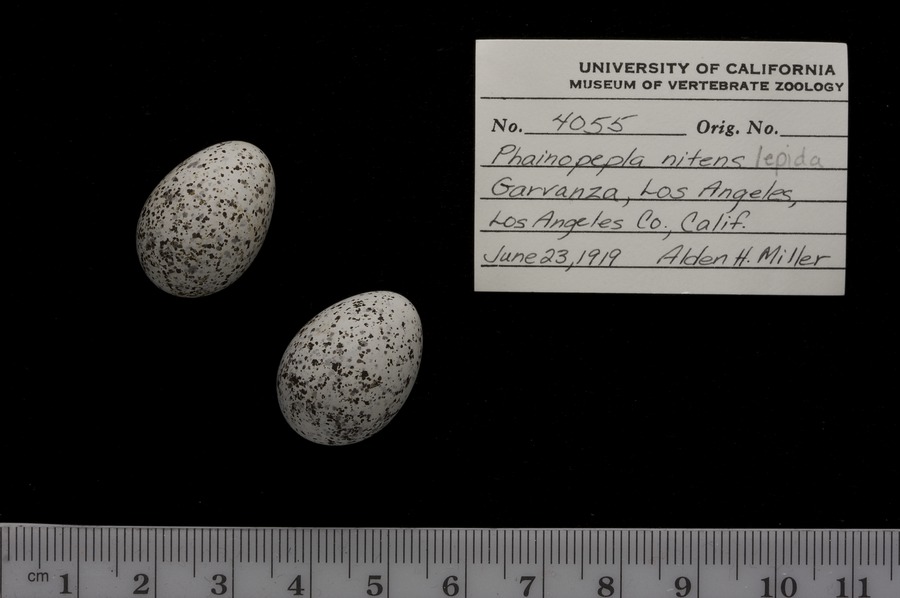 UNIVERSITY OF CALIFORNIA
MUSEUM OF VERTEBRATE ZOOLOGY
No. 4055 Orig. No.
Phainopepla nitens lepida
Garvanza, Los Angeles,
Los Angeles Co., Calif.
June 23, 1919 Alden H. Miller
cm 1 2 3 4 5 6 7 8 9 10 11